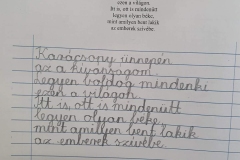 ezen a világon.
Itt is, ott is mindenütt
legyen olyan béke,
mint amilyen bent lakik
az emberek szívébe.
Karácsony ünnepén
az a kívánságom:
Legyen boldog mindenki
ezen a világon.
Itt is, ott is mindenütt
legyen olyan béke,
mint amilyen bent lakik
az emberek szívébe.